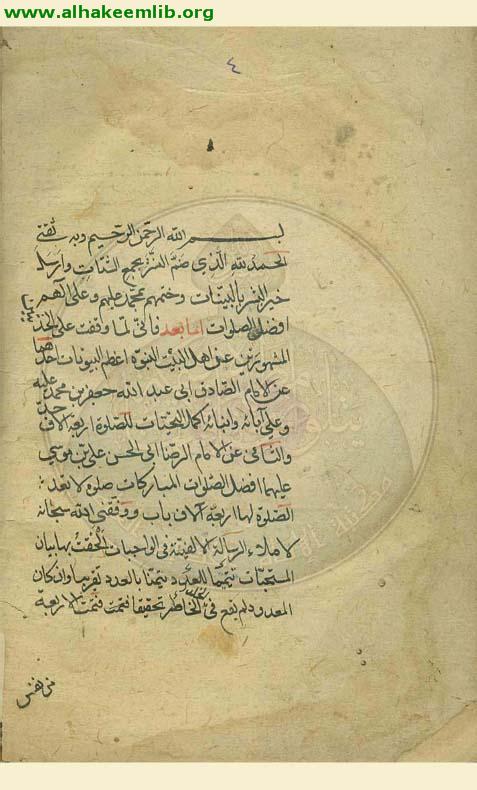 www.alhakeemlib.org
٤
بسم الله الرحمن الرحيم وبه ثقتي
الحمد لله الذي ضم النشر بجمع الشتات وارسل
خير البشر بالبينات وختمهم بمحمد عليهم وعلى آلهم
افضل الصلوات اما بعد فاني لما وقفت على الخبر
المشهورين عن اهل البيت النبوة اعظم البيوتات احدهما
عن الامام الصادق ابي عبد الله جعفر بن محمد عليه
وعلى آبائه وابنائه اكمل التحيات للصلوة اربعة الاف حد
والثاني عن الامام الرضا ابي الحسن علي بن موسى
عليهما افضل الصلوات المباركات صلوة لا تعد
الصلوة لها اربعة آلاف باب ووفقني الله سبحانه
لاملاء الرسالة الالفية في الواجبات الحقت بها بيان
المستحبات تتميما للعدد تقريبا وان كان
المعدود لم يقع في الخاطر تحقيقا فتمت الاربعة
من نفس